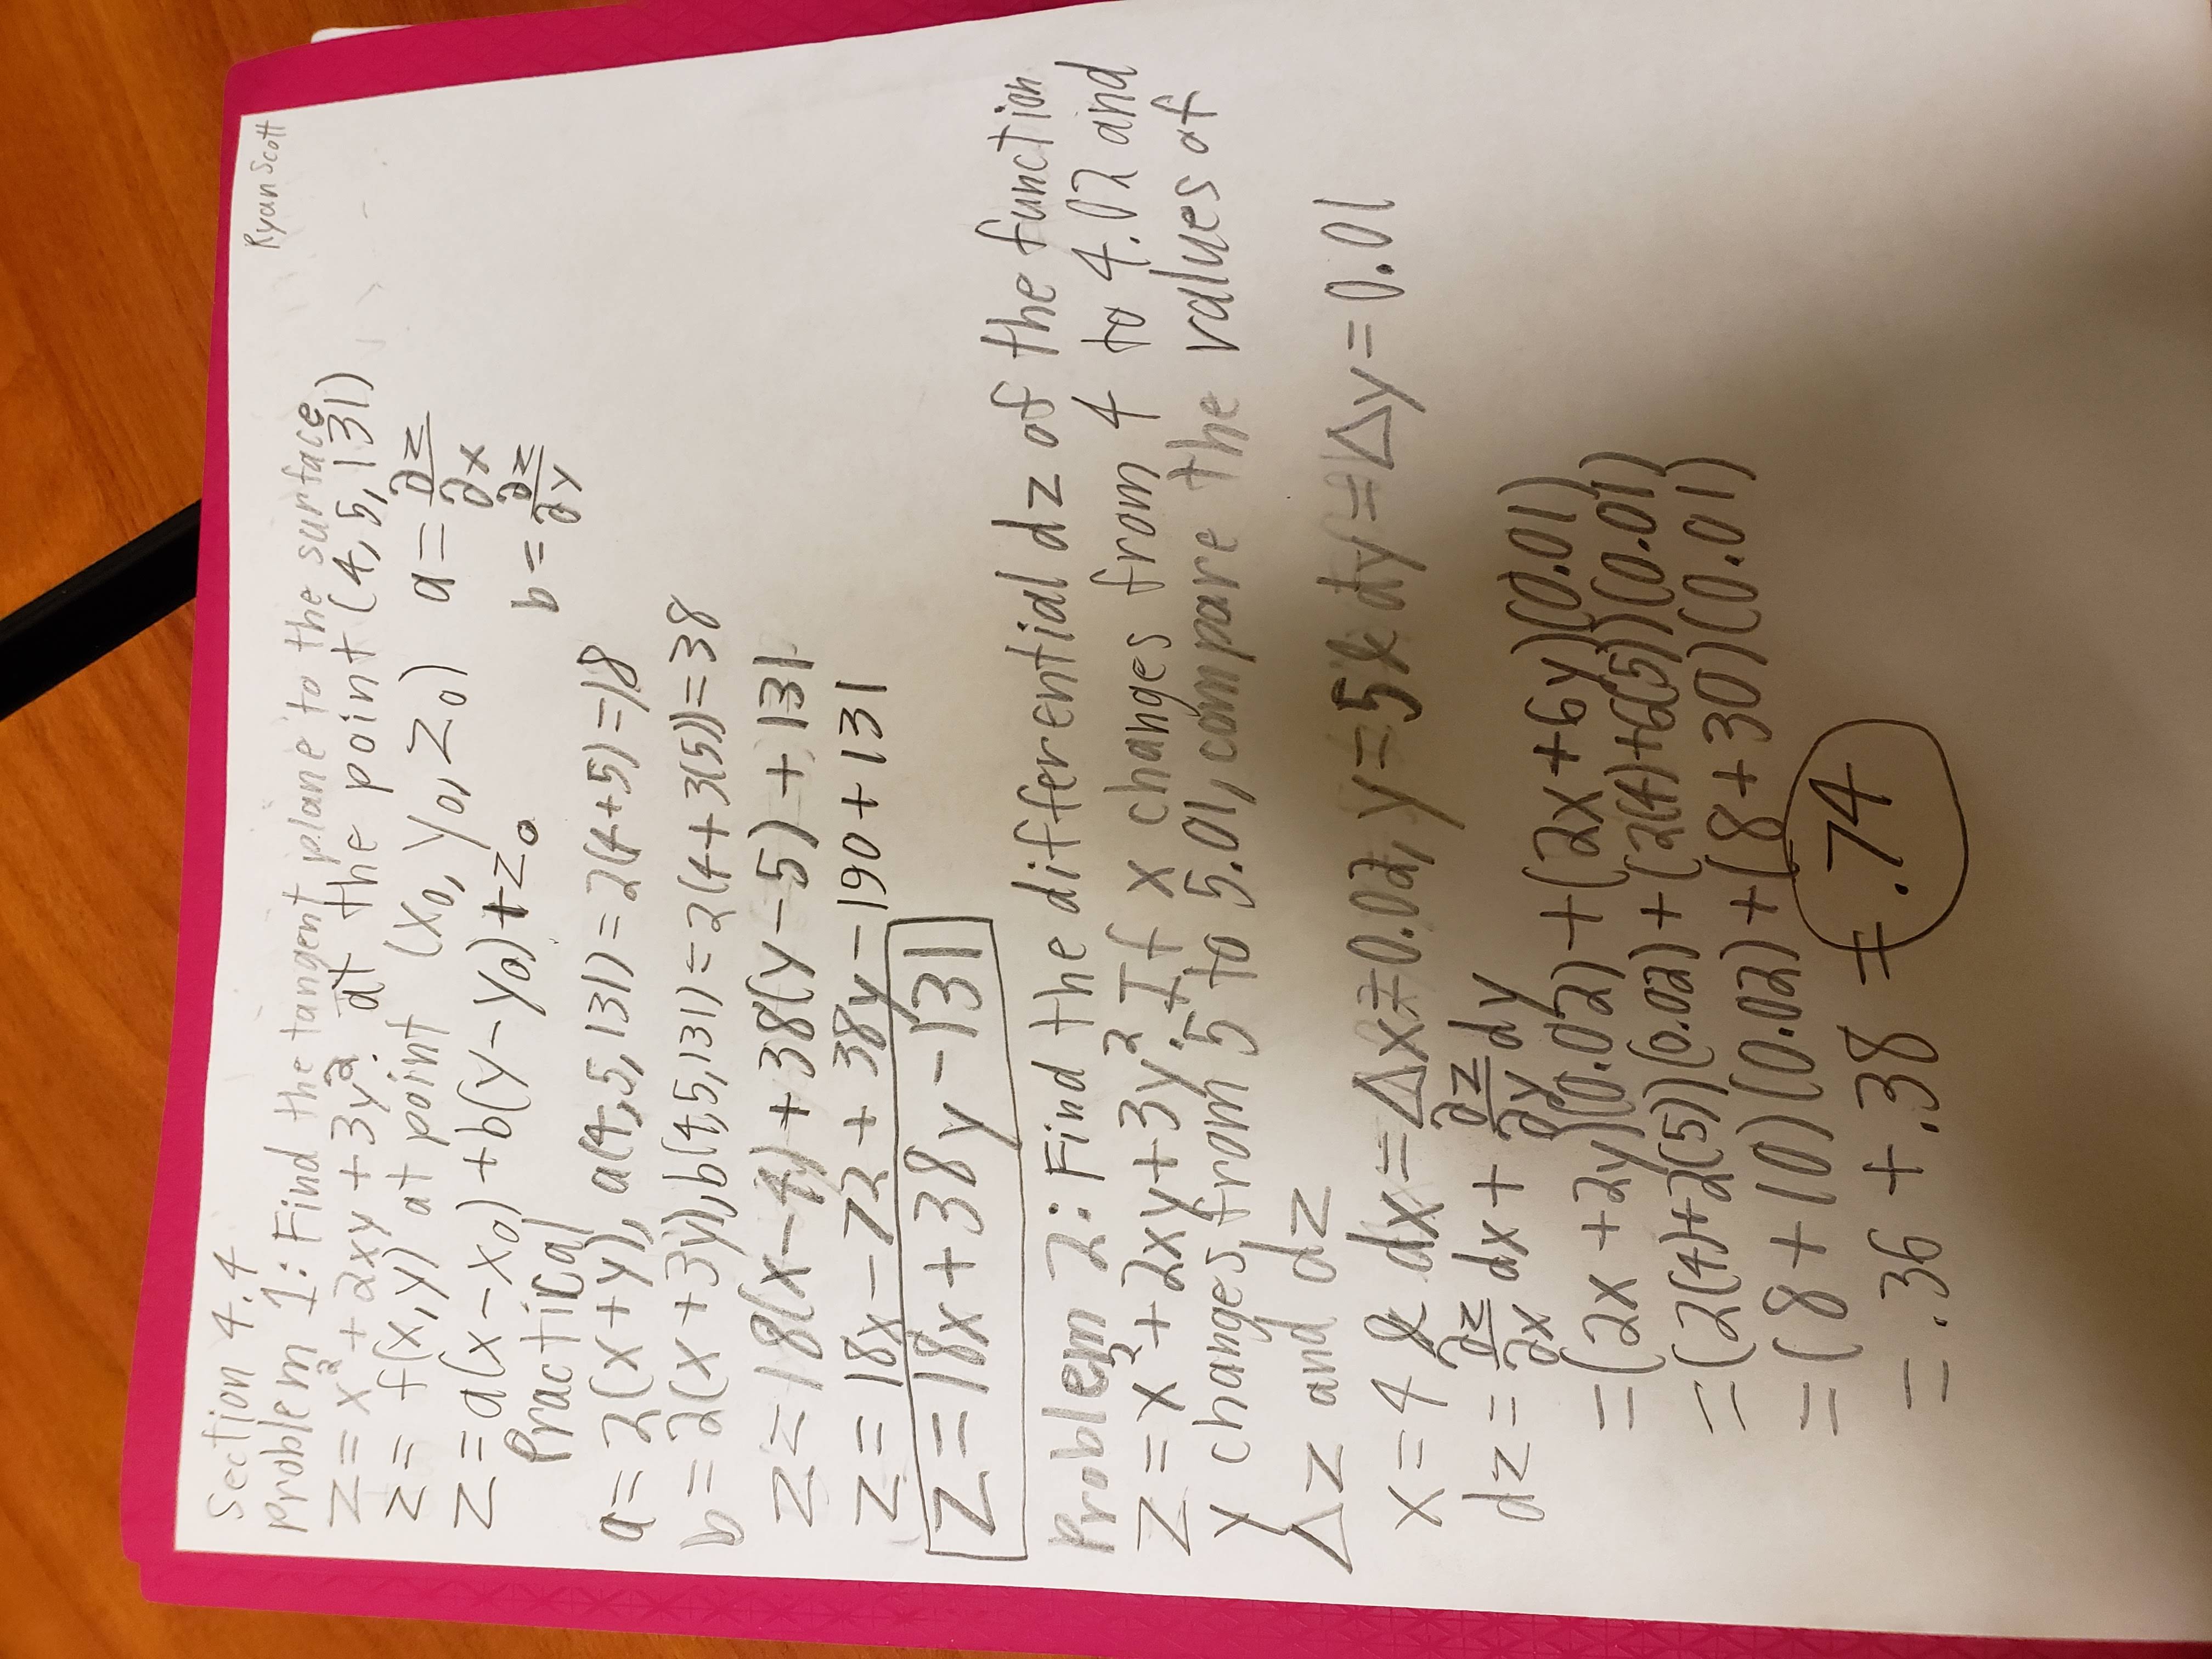 Section 4.4
Ryan Scott
Problem 1: Find the tangent plane to the surface
z = x² + 2xy + 3y². at the point (4, 5, 131)
z = f(x, y) at point (x₀, y₀, z₀) a = ∂z/∂x
z = a(x - x₀) + b(y - y₀) + z₀ b = ∂z/∂y
Practical
a = 2(x + y), a(4, 5, 131) = 2(4 + 5) = 18
b = 2(x + 3y), b(4, 5, 131) = 2(4 + 3(5)) = 38
z = 18(x - 4) + 38(y - 5) + 131
z = 18x - 72 + 38y - 190 + 131
z = 18x + 38y - 131
Problem 2: Find the differential dz of the function
z = x² + 2xy + 3y². If x changes from 4 to 4.02 and
y changes from 5 to 5.01, compare the values of
Δz and dz
x = 4 & dx = Δx = 0.02, y = 5 & dy = Δy = 0.01
dz = ∂z/∂x dx + ∂z/∂y dy
= (2x + 2y)(0.02) + (2x + 6y)(0.01)
= (2(4) + 2(5))(0.02) + (2(4) + 6(5))(0.01)
= (8 + 10)(0.02) + (8 + 30)(0.01)
= .36 + .38 = .74